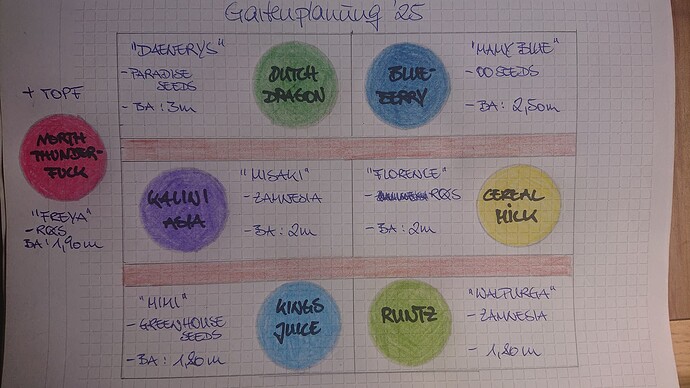 Gartenplanung '25
"DAENERYS"
- PARADISE
SEEDS
- BA: 3m
DUTCH
DRAGON
BLUE-
BERRY
"MAMY BLUE"
- OO SEEDS
- BA: 2,50m
+ TOPF
NORTH
THUNDER-
FUCK
"FREYA"
- RQS
BA: 1,90m
KALINI
ASIA
"MISAKI"
- ZAMNESIA
- BA: 2m
"FLORENCE"
- RQS
- BA: 2m
CEREAL
MILK
"MIMI"
- GREENHOUSE
SEEDS
- BA: 1,80m
KINGS
JUICE
RUNTZ
"WALPURGA"
- ZAMNESIA
- 1,80m